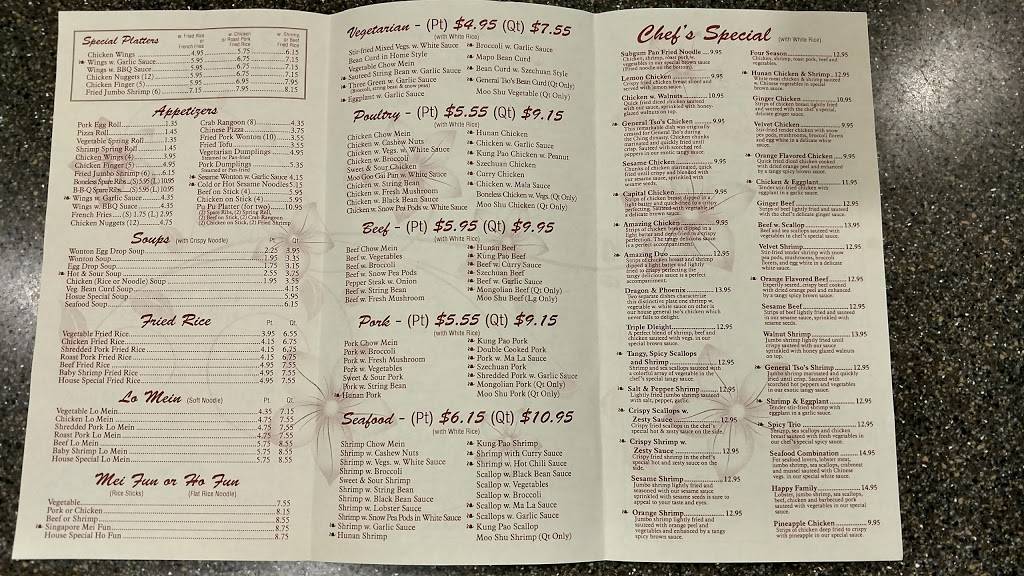 Special Platters
w. Fried Rice or French Fries
w. Chicken or Roast Pork Fried Rice
w. Shrimp or Beef Fried Rice
Chicken Wings 4.95 5.75 6.15
Wings w. Garlic Sauce 5.95 6.75 7.15
Wings w. BBQ Sauce 5.95 6.75 7.15
Chicken Nuggets (12) 5.95 6.75 7.15
Chicken Finger (5) 5.95 6.95 7.95
Fried Jumbo Shrimp (6) 7.15 7.95 8.15
Appetizers
Pork Egg Roll 1.35
Pizza Roll 1.45
Vegetable Spring Roll 1.35
Shrimp Spring Roll 1.45
Chicken Wings (4) 3.95
Chicken Finger (5) 4.95
Fried Jumbo Shrimp (6) 6.15
Boneless Spare Ribs (S) 5.95 (L) 10.95
B-B-Q Spare Ribs (S) 5.95 (L) 10.95
Wings w. Garlic Sauce 4.35
Wings w. BBQ Sauce 4.35
French Fries (S) 1.75 (L) 2.95
Chicken Nuggets (12) 4.75
Crab Rangoon (8) 4.35
Chinese Pizza 3.75
Fried Pork Wonton (10) 3.55
Fried Tofu 3.55
Vegetarian Dumplings 4.95
Steamed or Pan-fried
Pork Dumplings 5.35
Steamed or Pan-fried
Sesame Wonton w. Garlic Sauce 4.15
Cold or Hot Sesame Noodles 5.15
Beef on Stick (4) 5.95
Chicken on Stick (4) 5.95
Pu Pu Platter (for two) 10.95
(2) Spare Ribs, (2) Spring Roll,
(2) Beef on Stick, (2) Crab Rangoon
(2) Chicken on Stick, (2) Fried Shrimp
Soups (with Crispy Noodle) Pt. Qt.
Wonton Egg Drop Soup 2.25 3.95
Wonton Soup 1.95 3.15
Egg Drop Soup 1.75 3.15
Hot & Sour Soup 2.55 3.75
Chicken (Rice or Noodle) Soup 1.95 3.55
Veg. Bean Curd Soup 4.15
House Special Soup 5.95
Seafood Soup 6.15
Fried Rice Pt. Qt.
Vegetable Fried Rice 3.95 6.55
Chicken Fried Rice 4.15 6.75
Shredded Pork Fried Rice 4.15 6.75
Roast Pork Fried Rice 4.15 6.75
Beef Fried Rice 4.95 7.55
Baby Shrimp Fried Rice 4.95 7.55
House Special Fried Rice 4.95 7.55
Lo Mein (Soft Noodle) Pt. Qt.
Vegetable Lo Mein 4.35 7.15
Chicken Lo Mein 4.75 7.55
Shredded Pork Lo Mein 4.75 7.55
Roast Pork Lo Mein 4.75 7.55
Beef Lo Mein 5.75 8.55
Baby Shrimp Lo Mein 5.75 8.55
House Special Lo Mein 5.75 8.55
Mei Fun or Ho Fun
(Rice Sticks) (Flat Rice Noodle)
Vegetable 7.55
Pork or Chicken 8.15
Beef or Shrimp 8.55
Singapore Mei Fun 8.75
House Special Ho Fun 8.75
Vegetarian - (Pt) $4.95 (Qt) $7.55
(with White Rice)
Stir-fried Mixed Vegs. w. White Sauce
Bean Curd in Home Style
Vegetable Chow Mein
Sauteed String Bean w. Garlic Sauce
Three Green w. Garlic Sauce
(Broccoli, string bean & snow peas)
Eggplant w. Garlic Sauce
Broccoli w. Garlic Sauce
Mapo Bean Curd
Bean Curd w. Szechuan Style
General Tso's Bean Curd (Qt Only)
Moo Shu Vegetable (Qt Only)
Poultry - (Pt) $5.55 (Qt) $9.15
(with White Rice)
Chicken Chow Mein
Chicken w. Cashew Nuts
Chicken w. Vegs. w. White Sauce
Chicken w. Broccoli
Sweet & Sour Chicken
Moo Goo Gai Pan w. White Sauce
Chicken w. String Bean
Chicken w. Fresh Mushroom
Chicken w. Black Bean Sauce
Chicken w. Snow Pea Pods w. White Sauce
Hunan Chicken
Chicken w. Garlic Sauce
Kung Pao Chicken w. Peanut
Szechuan Chicken
Curry Chicken
Chicken w. Mala Sauce
Boneless Chicken w. Vegs. (Qt Only)
Moo Shu Chicken (Qt Only)
Beef - (Pt) $5.95 (Qt) $9.95
(with White Rice)
Beef Chow Mein
Beef w. Vegetables
Beef w. Broccoli
Beef w. Snow Pea Pods
Pepper Steak w. Onion
Beef w. String Bean
Beef w. Fresh Mushroom
Hunan Beef
Kung Pao Beef
Beef w. Curry Sauce
Szechuan Beef
Beef w. Garlic Sauce
Mongolian Beef (Qt Only)
Moo Shu Beef (Lg Only)
Pork - (Pt) $5.55 (Qt) $9.15
(with White Rice)
Pork Chow Mein
Pork w. Broccoli
Pork w. Fresh Mushroom
Pork w. Vegetables
Sweet & Sour Pork
Pork w. String Bean
Hunan Pork
Kung Pao Pork
Double Cooked Pork
Pork w. Ma La Sauce
Szechuan Pork
Shredded Pork w. Garlic Sauce
Mongolian Pork (Qt Only)
Moo Shu Pork (Qt Only)
Seafood - (Pt) $6.15 (Qt) $10.95
(with White Rice)
Shrimp Chow Mein
Shrimp w. Cashew Nuts
Shrimp w. Vegs. w. White Sauce
Shrimp w. Broccoli
Sweet & Sour Shrimp
Shrimp w. String Bean
Shrimp w. Black Bean Sauce
Shrimp w. Lobster Sauce
Shrimp w. Snow Pea Pods in White Sauce
Shrimp w. Garlic Sauce
Hunan Shrimp
Kung Pao Shrimp
Shrimp with Curry Sauce
Shrimp w. Hot Chili Sauce
Scallop w. Black Bean Sauce
Scallop w. Vegetables
Scallop w. Broccoli
Scallop w. Ma La Sauce
Scallops w. Garlic Sauce
Kung Pao Scallop
Moo Shu Shrimp (Qt Only)
Chef's Special (with White Rice)
Subgum Pan Fried Noodle 9.95
Chicken, shrimp, roast pork w.
vegetables in special brown sauce
(Fried noodle on the bottom).
Lemon Chicken 9.95
Crispy fried chicken breast sliced and
served with lemon sauce.
Chicken w. Walnuts 10.95
Quick fried diced chicken sauteed
with our sauce, sprinkled with honey-
glazed walnuts on top.
General Tso's Chicken 9.95
This remarkable dish was originally
created for General Tso's during
the Ching dynasty. Chicken chunks
marinated and quickly fried until
crisp. Sauteed with scorched red
peppers in our exotic tangy sauce.
Sesame Chicken 9.95
Strips of chicken chunks, quick
fried until crispy and blended
with our sauce, sprinkled with
sesame seeds.
Capital Chicken 9.95
Amazing Chicken 9.95
Strips of chicken breast dipped in a
light batter and deep-fried to a crispy
perfection. The tangy delicious sauce
is a perfect accompaniment.
Amazing Duo 12.95
Strips of chicken breast and shrimp
dipped a light batter and lightly
fried to crispy perfection the
tangy delicious sauce is a perfect
accompaniment.
Dragon & Phoenix 13.95
Two separate dishes characterize
this distinctive plate one shrimp w.
vegetable w. white sauce on other is
our house general tso's chicken which
never fails to delight.
Triple Delight 12.95
A perfect blend of shrimp, beef and
chicken with vegs. in our
special brown sauce.
Tangy, Spicy Scallops
and Shrimp 12.95
Shrimp and sea scallops sauteed with
a colorful array of vegetable in the
chef's special tangy sauce.
Salt & Pepper Shrimp 12.95
Lightly fried jumbo shrimp sauteed
with salt, pepper, garlic.
Crispy Scallops w.
Zesty Sauce 12.95
Crispy fried scallops in the chef's
special hot & zesty sauce on the side.
Crispy Shrimp w.
Zesty Sauce 12.95
Crispy fried shrimp in the chef's
special hot and zesty sauce on the
side.
Sesame Shrimp 12.95
Jumbo shrimp lightly fried and
seasoned with our sesame sauce
sprinkled with sesame seeds is sure to
appeal to your taste and eyes.
Orange Shrimp 12.95
Jumbo shrimp lightly fried and
sauteed with orange peel and
vegetables and enhanced by a tangy
spicy brown sauce.
Four Season 12.95
Chicken, shrimp, roast pork, beef and
vegetables.
Hunan Chicken & Shrimp 12.95
White meat chicken & shrimp sauteed
w. Chinese vegetables in special
brown sauce.
Ginger Chicken 10.95
Strips of chicken lightly fried and
sauteed with the chef's delicate
ginger sauce.
Velvet Chicken 9.95
Stir-fried tender chicken with snow
pea pods, mushrooms, broccoli florets
and egg white in a delicate white
sauce.
Orange Flavored Chicken 9.95
Crispy sliced chicken sauteed with
dried orange peel and enhanced
by a tangy spicy brown sauce.
Chicken & Eggplant 11.95
Tender stir-fried chicken with
eggplant in a garlic sauce.
Ginger Beef 12.95
Strips of beef lightly fried and sauteed
with the chef's delicate ginger sauce.
Beef w. Scallop 13.95
Beef and sea scallops sauteed with
vegetables in chef's special sauce.
Velvet Shrimp 12.95
Stir-fried tender shrimp with snow
pea pods, mushrooms, broccoli
florets, and egg white in a delicate
white sauce.
Orange Flavored Beef 12.95
Expertly seared, crispy beef cooked
with dried orange peel and enhanced
by a tangy spicy brown sauce.
Sesame Beef 12.95
Strips of beef lightly fried and sauteed
in our sesame sauce, sprinkled with
sesame seeds.
Walnut Shrimp 13.95
Jumbo shrimp lightly fried until
crispy sauteed with our sauce
sprinkled with honey glazed walnuts
on top.
General Tso's Shrimp 12.95
Jumbo shrimp marinated and quickly
fried until crisp. Sauteed with
scorched hot peppers and vegetables
in our exotic tangy sauce.
Shrimp & Eggplant 12.95
Tender stir-fried shrimp with
eggplant in a garlic sauce.
Spicy Trio 12.95
Shrimp, sea scallops and chicken
breast sauteed with fresh vegetables in
our chef's special tangy sauce.
Seafood Combination 14.95
For seafood lovers, lobster meat,
jumbo shrimp, sea scallops, crabmeat
and mussel sauteed with Chinese
vegs. in our special white sauce.
Happy Family 14.95
Lobster, jumbo shrimp, sea scallops,
beef, chicken and barbecued pork
sauteed with vegetables in our special
sauce.
Pineapple Chicken 9.95
Strips of chicken deep fried to crispy
with pineapple in our special sauce.